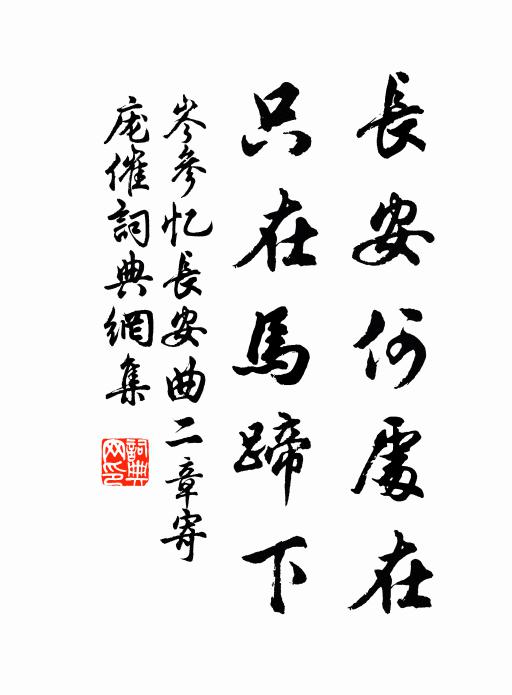 長安何處在
只在馬蹄下
岑參忆長安曲二章寄
庞催詞典網集
詞典
网印